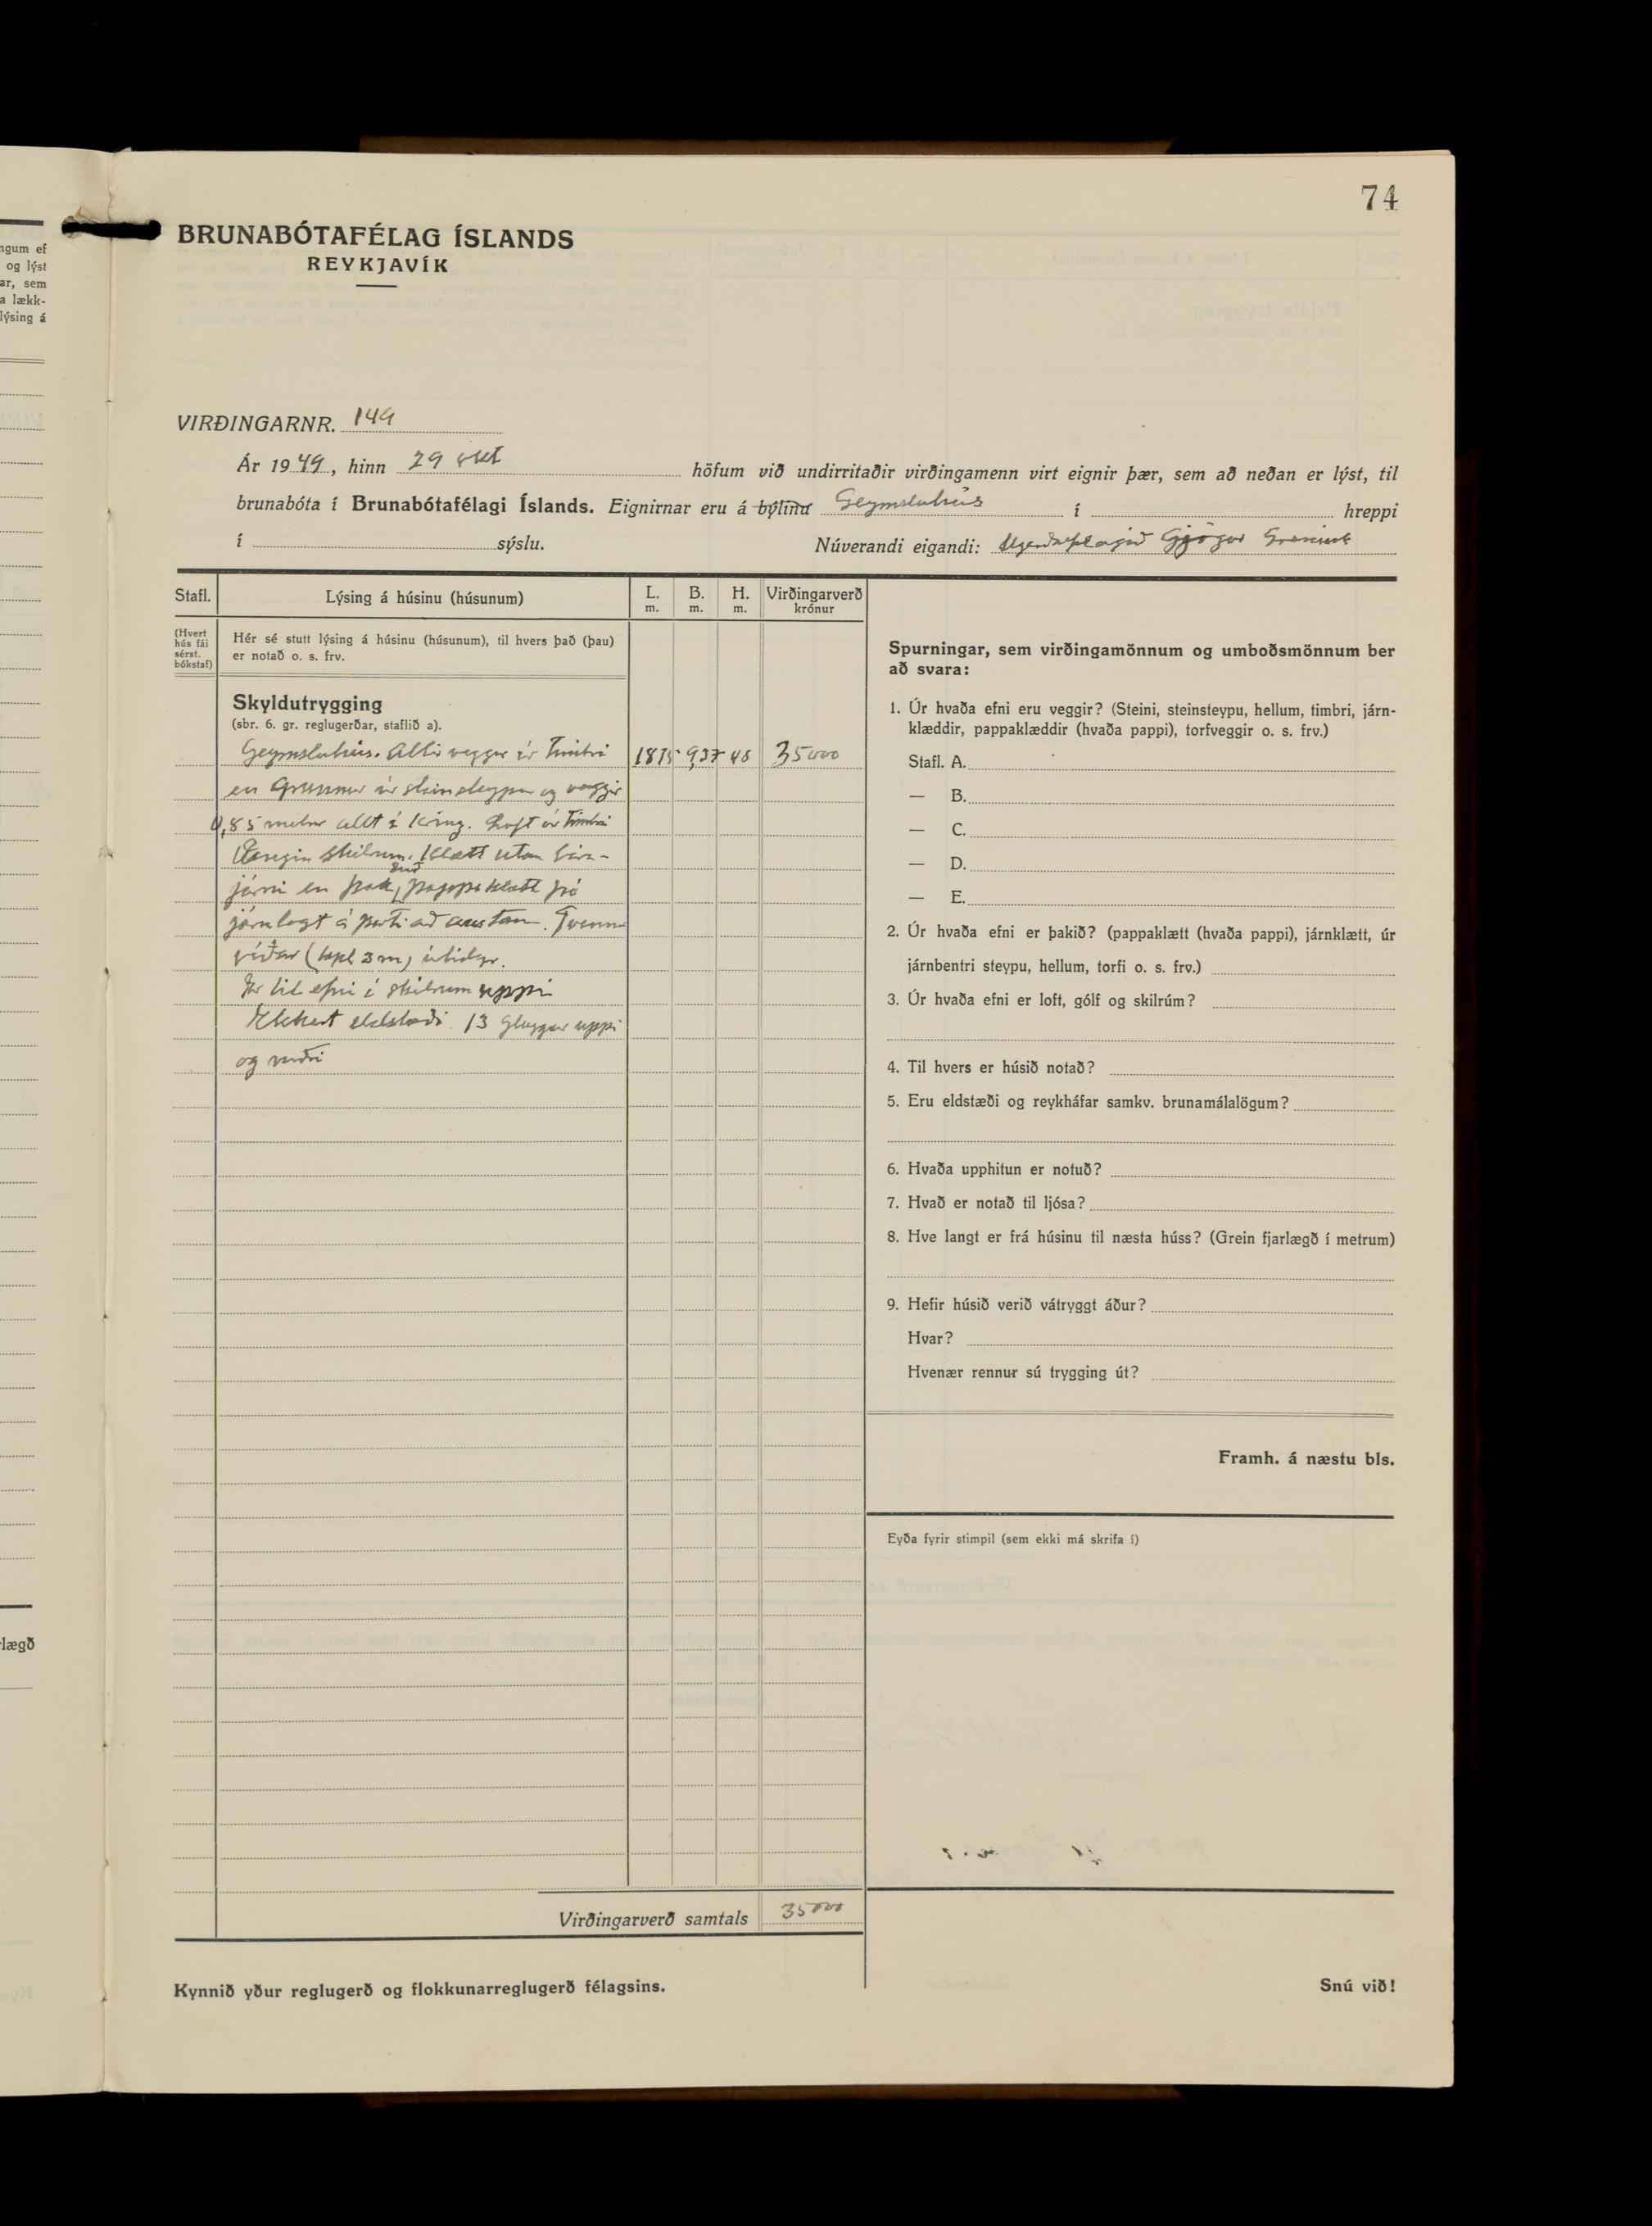 74
BRUNABÓTAFÉLAG ÍSLANDS
REYKJAVÍK
VIRÐINGARNR. 149
Ár 1949, hinn 29 okt höfum við undirritaðir virðingamenn virt eignir þær, sem að neðan er lýst, til
brunabóta í Brunabótafélagi Íslands. Eignirnar eru á býlinu Geymsluhús í hreppi
í sýslu. Núverandi eigandi: Útgerðafélagið Gjögur Grenivík
Stafl. Lýsing á húsinu (húsunum) L. m. B. m. H. m. Virðingarverð krónur
(Hvert hús fái sérst. bókstaf)
Hér sé stutt lýsing á húsinu (húsunum), til hvers það (þau)
er notað o. s. frv.
Skyldutrygging
(sbr. 6. gr. reglugerðar, staflið a).
Geymsluhús. Allir veggir úr timbri 1875 937 48 35000
en Grunnur úr steinsteypu og veggir
0,85 metur allt í kring. Loft úr timbri
Engin skilrum. Klætt utan báru-
járni en þak pappaklætt þó
járnlagt á parti að austan. Tvennar
víðar (kpl 3 m) útidyr.
Er til efni í skilrum uppi
Ekkert eldstæði. 13 Gluggar uppi
og niðri
Virðingarverð samtals 35000
Spurningar, sem virðingamönnum og umboðsmönnum ber
að svara:
1. Úr hvaða efni eru veggir? (Steini, steinsteypu, hellum, timbri, járn-
klæddir, pappaklæddir (hvaða pappi), torfveggir o. s. frv.)
Stafl. A.
— B.
— C.
— D.
— E.
2. Úr hvaða efni er þakið? (pappaklætt (hvaða pappi), járnklætt, úr
járnbentri steypu, hellum, torfi o. s. frv.)
3. Úr hvaða efni er loft, gólf og skilrúm?
4. Til hvers er húsið notað?
5. Eru eldstæði og reykháfar samkv. brunamálalögum?
6. Hvaða upphitun er notuð?
7. Hvað er notað til ljósa?
8. Hve langt er frá húsinu til næsta húss? (Grein fjarlægð í metrum)
9. Hefir húsið verið vátryggt áður?
Hvar?
Hvenær rennur sú trygging út?
Framh. á næstu bls.
Eyða fyrir stimpil (sem ekki má skrifa í)
Kynnið yður reglugerð og flokkunarreglugerð félagsins.
Snú við!